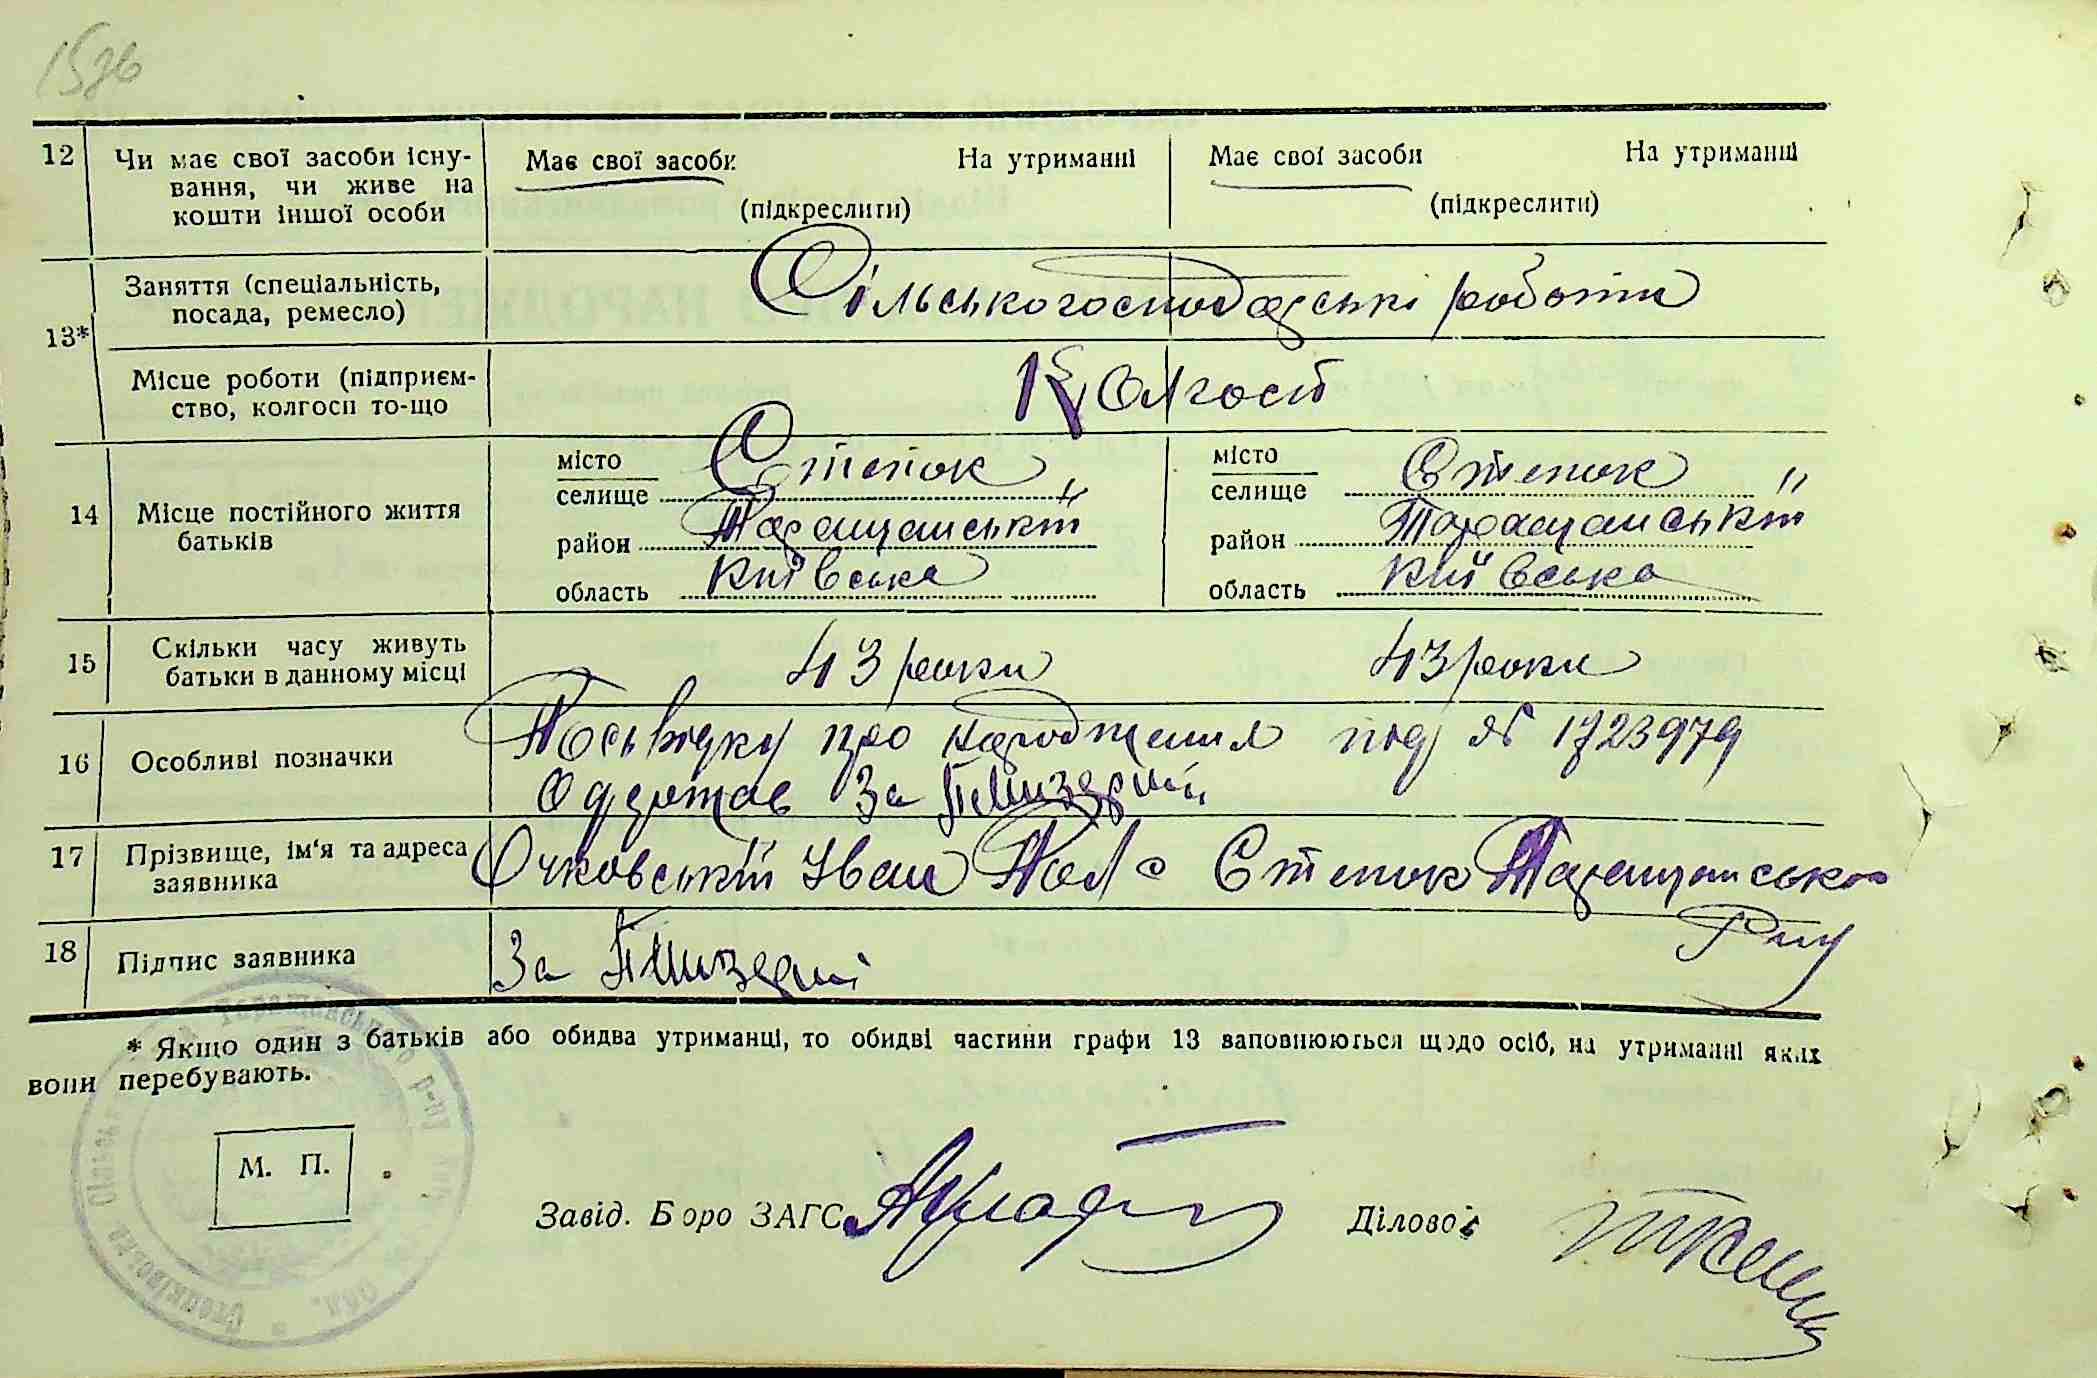 12 Чи має свої засоби існу- Має свої засоби На утриманні Має свої засоби На утриманні
вання, чи живе на
кошти іншої особи (підкреслити) (підкреслити)
13* Заняття (спеціальність, Сільськогосподарські роботи
посада, ремесло)
Місце роботи (підприєм- Колгосп
ство, колгосп то-що
14 Місце постійного життя батьків
місто Степок місто Степок
селище селище
район Таращанський район Таращанський
область Київська область Київська
15 Скільки часу живуть 43 роки 43 роки
батьки в данному місці
16 Особливі позначки Посьвідку про народження під № 1723979
Одержав За
17 Прізвище, ім'я та адреса Очковський Іван с Степок Таращансько
заявника р-ну
18 Підпис заявника За
* Якщо один з батьків або обидва утриманці, то обидві частини графи 13 заповнюються щодо осіб, на утриманні яких
вони перебувають.
М. П.
Завід. Боро ЗАГС Діловод